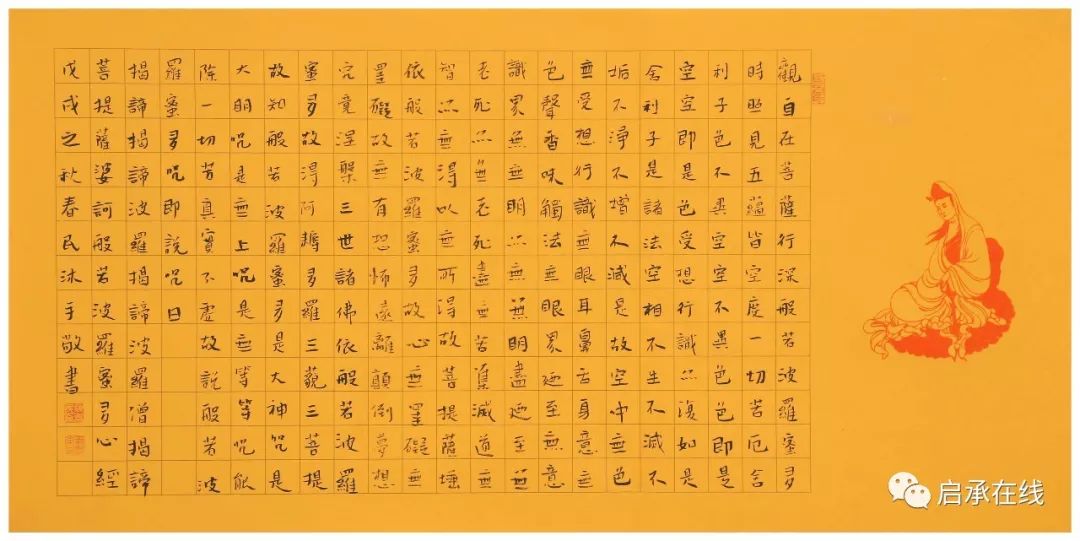 觀自在菩薩行深般若波羅蜜多
時照見五蘊皆空度一切苦厄舍
利子色不異空空不異色色即是
空空即是色受想行識亦復如是
舍利子是諸法空相不生不滅不
垢不淨不增不減是故空中無色
無受想行識無眼耳鼻舌身意無
色聲香味觸法無眼界廼至無意
識界無無明亦無無明盡廼至無
老死亦無老死盡無苦集滅道無
智亦無得以無所得故菩提薩埵
依般若波羅蜜多故心無罣礙無
罣礙故無有恐怖遠離顛倒夢想
究竟涅槃三世諸佛依般若波羅
蜜多故得阿耨多羅三藐三菩提
故知般若波羅蜜多是大神咒是
大明咒是無上咒是無等等咒能
除一切苦真實不虛故說般若波
羅蜜多咒即說咒曰
揭諦揭諦波羅揭諦波羅僧揭諦
菩提薩婆訶般若波羅蜜多心經
戊戌之秋春民沐手敬書
启承在线